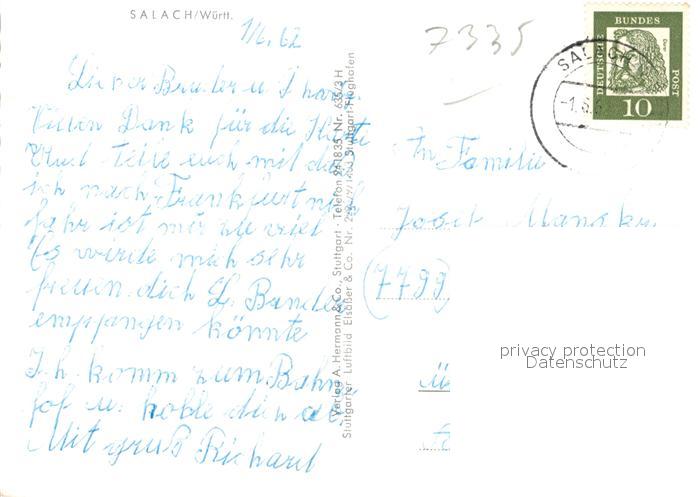 SALACH/Württ.
1/6. 62
7335
Lieber Bruder u
Vielen Dank für die Karte
teile euch mit das
ich nach Frankfurt nicht
fahr ist mir zu viel
Es würde mich sehr
freuen dich L. Bruder
empfangen könnte
Ich komm zum Bahn
hof u. hohle dich ab
Mit gruß Richard
Verlag A. Hermann & Co., Stuttgart · Telefon 241835 Nr. 635/3 H
Stuttgarter Luftbild Elsäßer & Co. Nr. Stuttgart-Flughafen
DEUTSCHE
BUNDES
POST
Dürer
10
SALACH
-1.6.6
An Familie
Josef
(7799)
privacy protection
Datenschutz
Ü